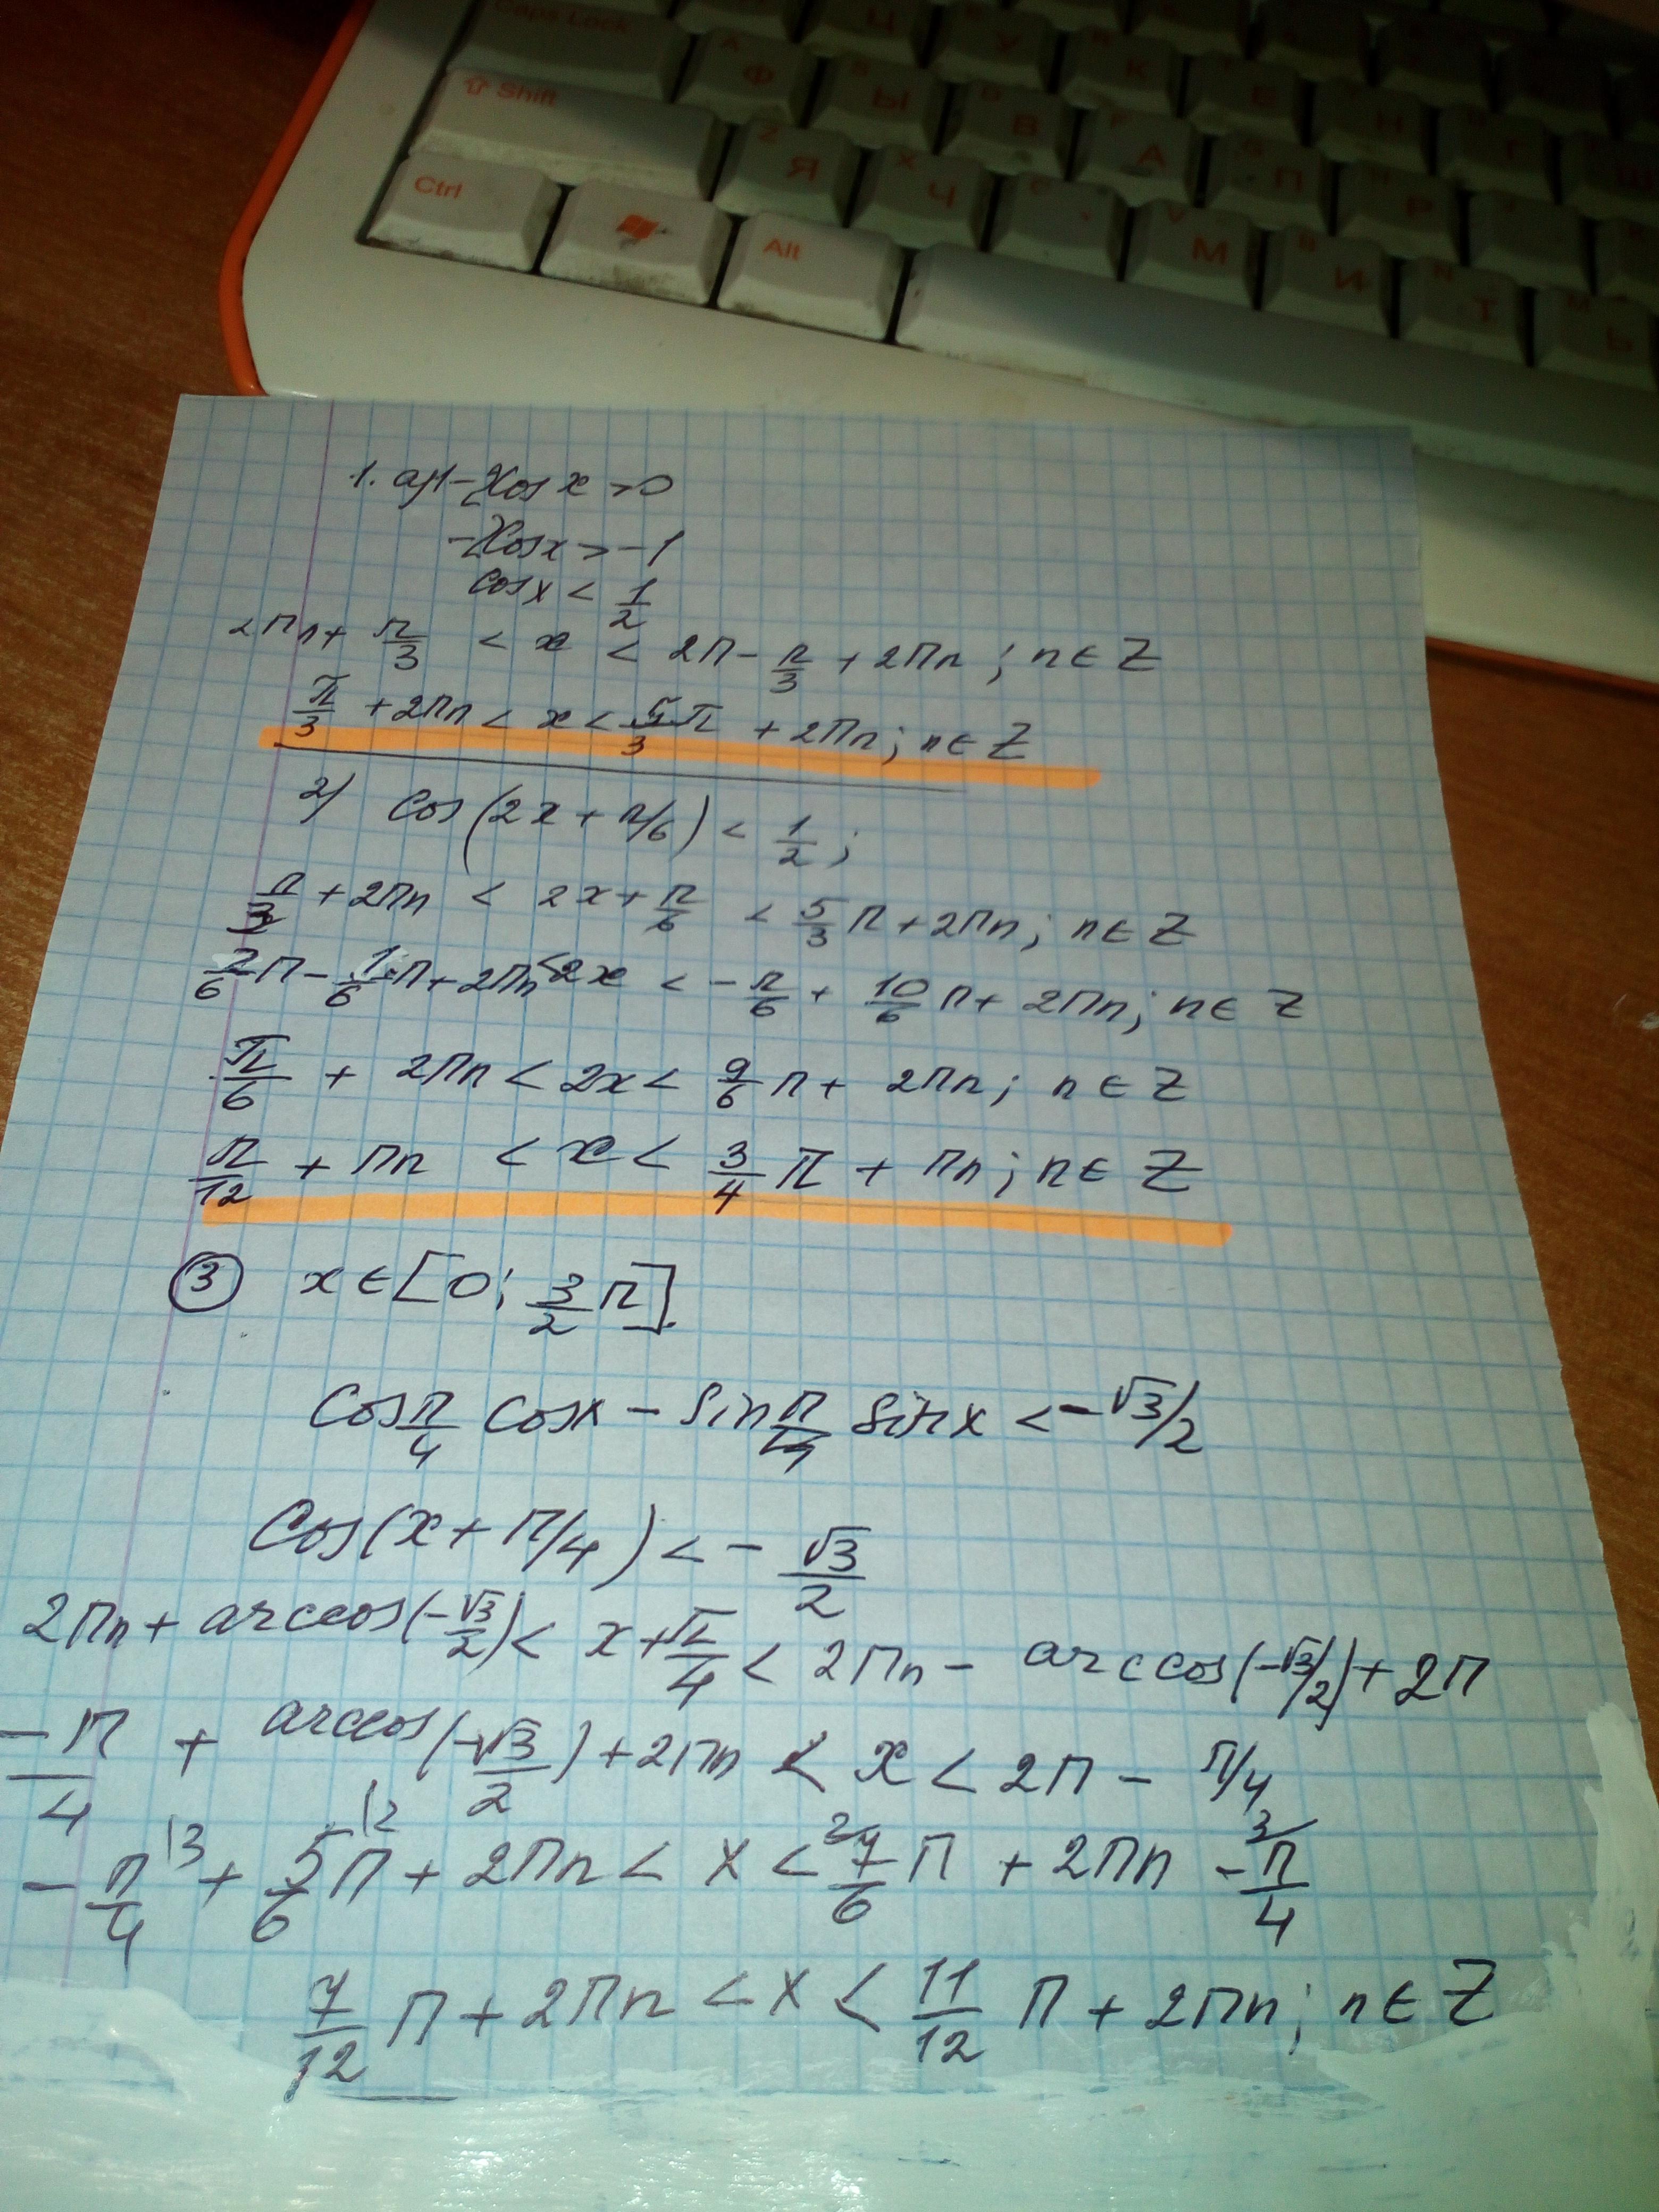 Caps Lock
Ф
Ы
В
А
П
Р
Shift
Z Я
X Ч
М
И
Т
Ь
Ctrl
Alt
1. a) 1-2cos x >0
-2cosx > -1
cosx < 1/2
2πn+ π/3 < x < 2π - π/3 + 2πn ; n∈Z
π/3 + 2πn < x < 5/3 π + 2πn; n∈Z
2) cos(2x+π/6) < 1/2 ;
π/3 + 2πn < 2x+π/6 < 5/3 π+2πn; n∈Z
2/6 π - 1/6 π+2πn < 2x < -π/6 + 10/6 π+ 2πn; n∈Z
π/6 + 2πn < 2x < 9/6 π+ 2πn; n∈Z
π/12 + πn < x < 3/4 π + πn; n∈Z
③ x∈[0; 3/2 π].
cos π/4 cosx - sin π/4 sinx < -√3/2
cos(x+π/4) < - √3/2
2πn+ arccos(-√3/2) < x+π/4 < 2πn - arccos(-√3/2)+2π
-π/4 + arccos(-√3/2)+2πn < x < 2π - π/4
-π/4 \3 + 5/6 π \2 + 2πn < x < 2/ 7/6 π + 2πn - 3/ π/4
7/12 π + 2πn < x < 11/12 π + 2πn; n∈Z